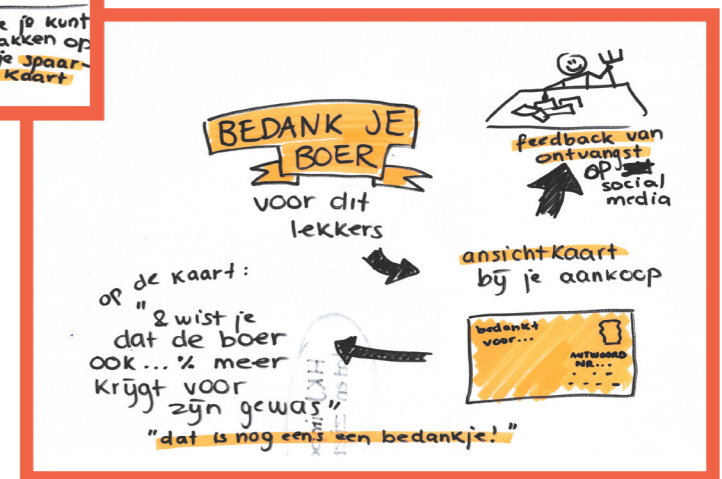 je kunt
akken op
je spaar-
kaart
BEDANK JE
BOER
voor dit
lekkers
feedback van
ontvangst
op
social
media
ansichtkaart
bij je aankoop
bedankt
voor...
ANTWOORD
NR...
op de kaart:
"& wist je
dat de boer
OOK...% meer
krijgt voor
zijn gewas"
"dat is nog eens een bedankje!"